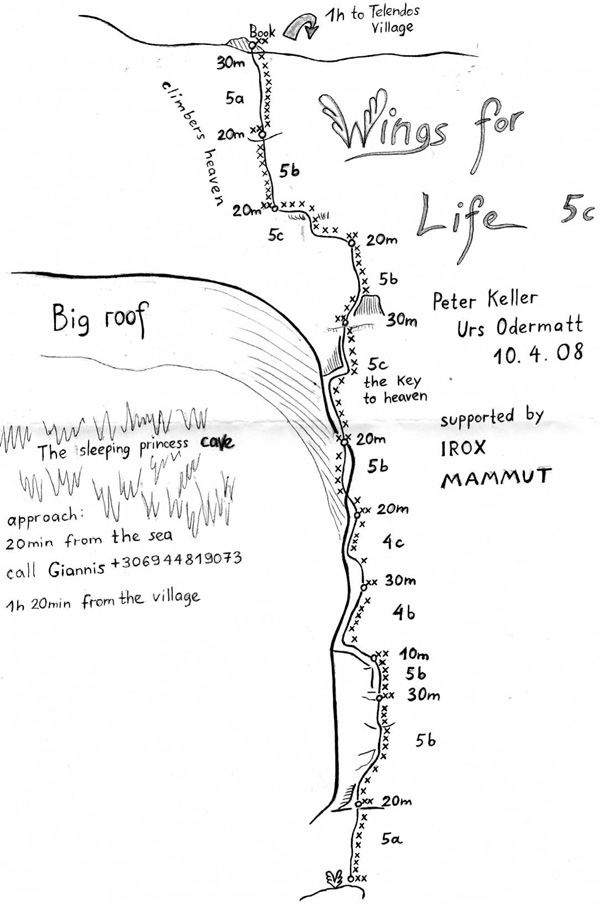 Book
1h to Telendos
Village
30m
5a
climbers heaven
20m
5b
20m
5c
Wings for
Life 5c
20m
5b
30m
Peter Keller
Urs Odermatt
10.4.08
Big roof
5c
the key
to heaven
supported by
IROX
MAMMUT
The sleeping princess cave
20m
5b
approach:
20min from the sea
call Giannis +306944819073
1h 20min from the village
20m
4c
30m
4b
10m
5b
30m
5b
20m
5a